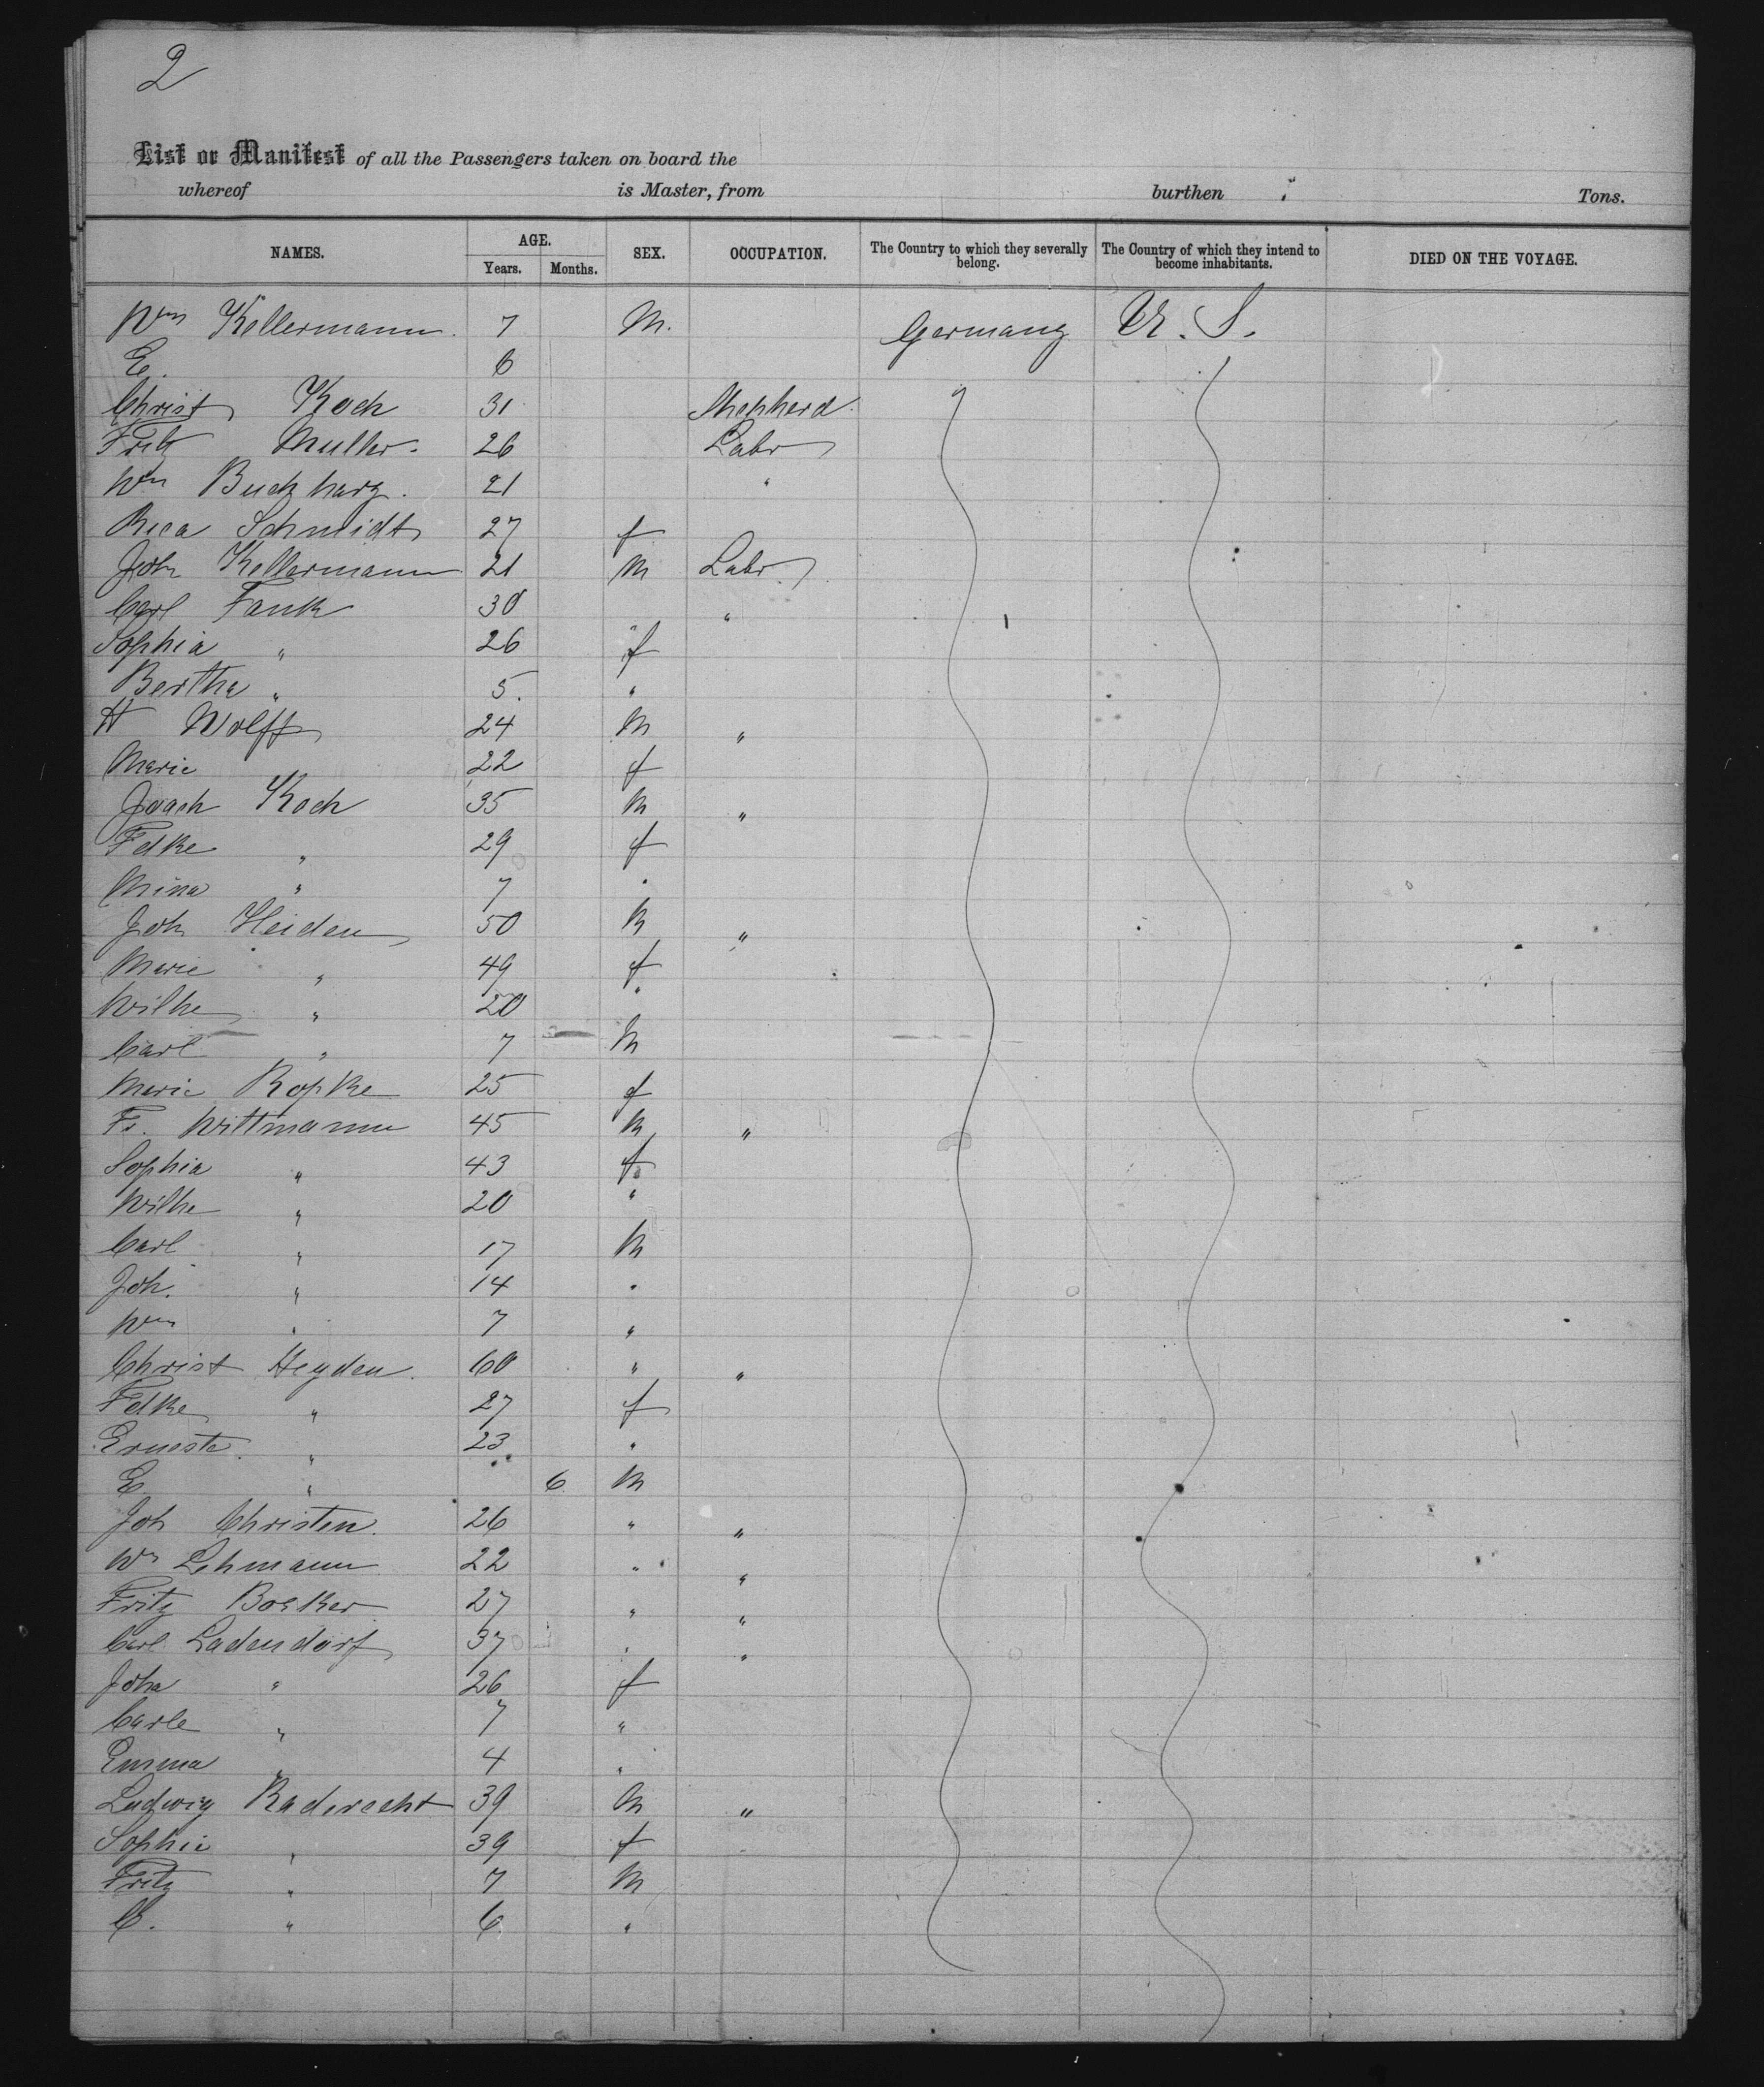 2
List or Manifest of all the Passengers taken on board the
whereof is Master, from burthen Tons.
NAMES. AGE. Years. Months. SEX. OCCUPATION. The Country to which they severally belong. The Country of which they intend to become inhabitants. DIED ON THE VOYAGE.
Wm Kellermann 7 M. Germany U. S.
E. 6
Christ Koch 31 Shepherd
Fritz Muller 26 Labr
Wm Buchharz 21 "
Rica Schmidt 27 f
Joh Kellermann 21 M Labr
Carl Fank 30 "
Sophia " 26 f
Bertha " 5 "
H Wolff 24 M "
Marie 22 f
Joach Koch 35 M "
Fdke " 29 f
Mina " 7 "
Joh Heiden 50 M "
Marie " 49 f
Wilhe " 20 "
Carl " 7 M
Marie Ropke 25 f
Fr. Wittmann 45 M "
Sophia " 43 f
Wilhe " 20 "
Carl " 17 M
Joh. " 14 "
Wm " 7 "
Christ Heyden 60 " "
Fdke " 27 f
Erneste " 23 "
E " 6 M
Joh Christen 26 " "
Wm Lehmann 22 " "
Fritz Boeker 27 " "
Carl Ladendorf 37 " "
Joha " 26 f
Carle " 7 "
Emma " 4 "
Ludwig Raderecht 39 M "
Sophie " 39 f
Fritz " 7 M
C. " 6 "